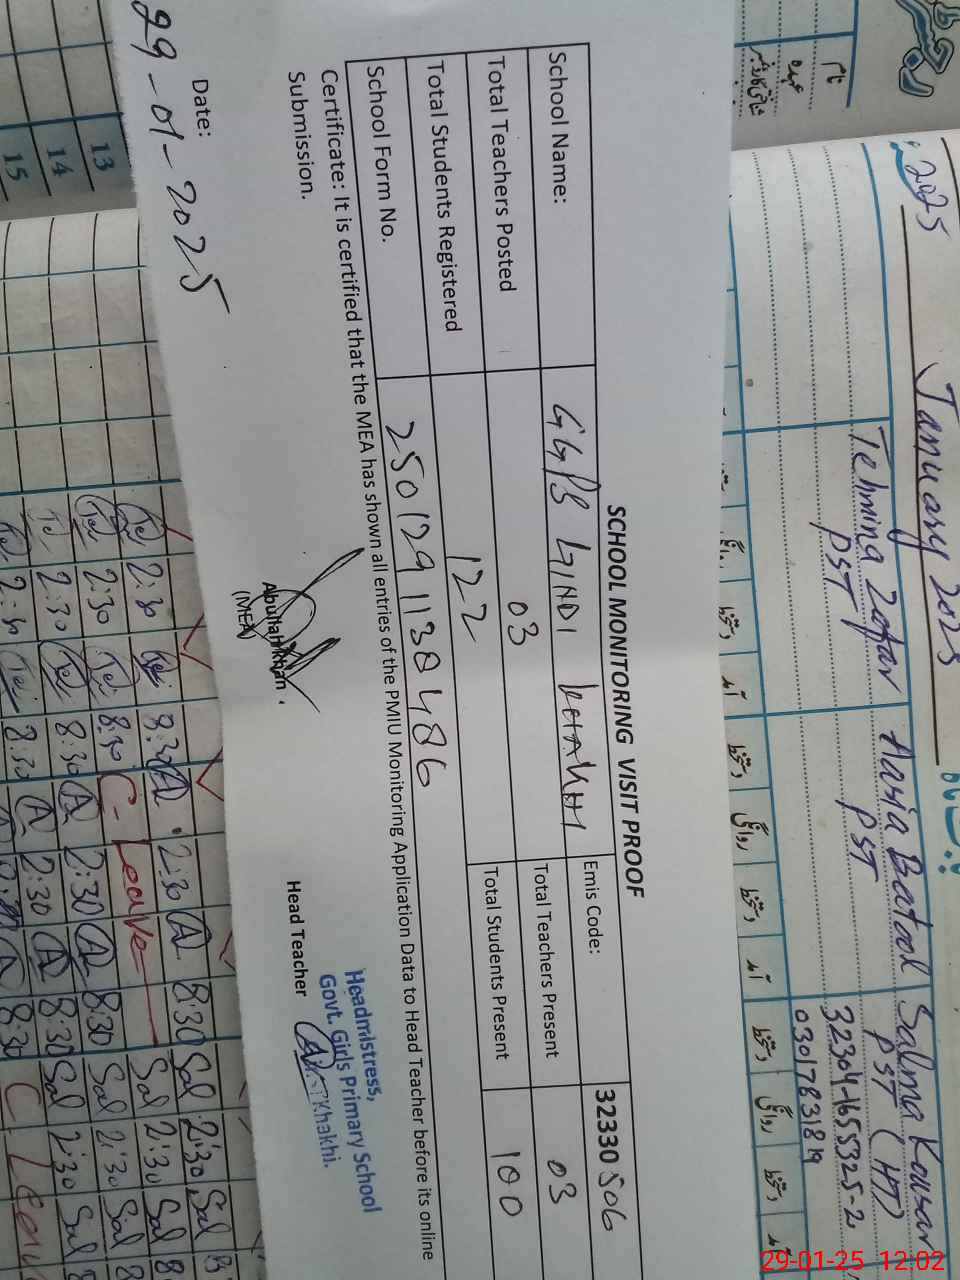 2025
January 2025
Tehmina Zafar
PST
Aasia Batool
PST
Salma Kousar
PST (HT)
32304-1655325-2
03017831819
نام
عہدہ
آمد دستخط روانگی دستخط آمد دستخط روانگی دستخط
SCHOOL MONITORING VISIT PROOF
School Name: GGPS GINDI KHAKHI Emis Code: 32330506
Total Teachers Posted 03 Total Teachers Present 03
Total Students Registered 122 Total Students Present 100
School Form No. 250129113848 6
Certificate: It is certified that the MEA has shown all entries of the PMIU Monitoring Application Data to Head Teacher before its online
Submission.
Abullah Khan
(MEA)
Head Teacher
Headmistress,
Govt. Girls Primary School
Khakhi.
Date:
29-01-2025
2:30 8:30 A 2:30 A 8:30 Sal 2:30 Sal
13 2:30 8:30 C-Leave Sal 2:30 Sal 8
14 2:30 8:30 A 2:30 A 8:30 Sal 2:30 Sal 8
15 2:30 8:30 A 2:30 A 8:30 Sal 2:30 Sal
8:30 C Leave
29-01-25 12:02